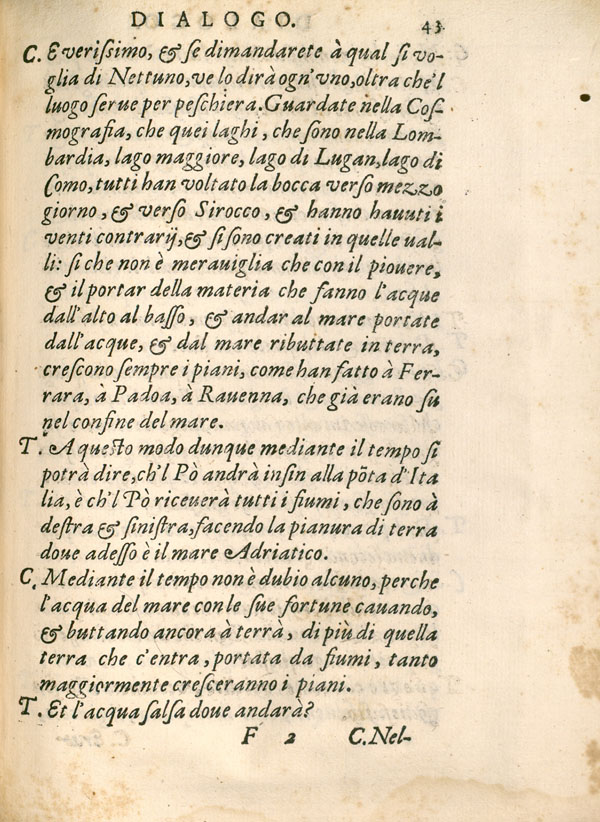 DIALOGO. 43
C. E verissimo, & se dimandarete à qual si vo-
glia di Nettuno, ve lo dirà ogn'vno, oltra che'l
luogo serue per peschiera. Guardate nella Cos-
mografia, che quei laghi, che sono nella Lom-
bardia, lago maggiore, lago di Lugan, lago di
Como, tutti han voltato la bocca verso mezzo
giorno, & verso Sirocco, & hanno hauuti i
venti contrarij, & si sono creati in quelle ual-
li: si che non è merauiglia che con il piouere,
& il portar della materia che fanno l'acque
dall'alto al basso, & andar al mare portate
dall'acque, & dal mare ributtate in terra,
crescono sempre i piani, come han fatto à Fer-
rara, à Padoa, à Rauenna, che già erano su
nel confine del mare.
T. A questo modo dunque mediante il tempo si
potrà dire, ch'l Pò andrà insin alla põta d'Ita
lia, è ch'l Pò riceuerà tutti i fiumi, che sono à
destra & sinistra, facendo la pianura di terra
doue adesso è il mare Adriatico.
C. Mediante il tempo non è dubio alcuno, perche
l'acqua del mare con le sue fortune cauando,
& buttando ancora à terrà, di più di quella
terra che c'entra, portata da fiumi, tanto
maggiormente cresceranno i piani.
T. Et l'acqua salsa doue andarà?
F 2 C. Nel-